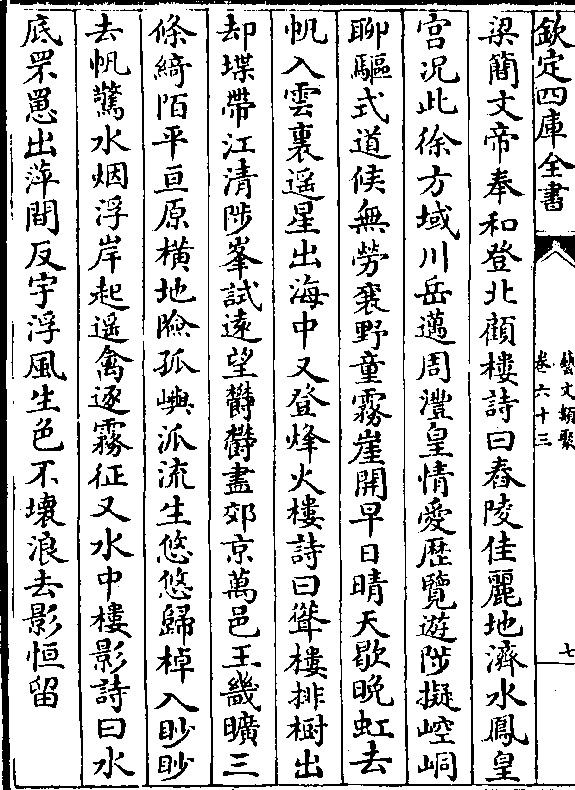 欽定四庫全書
藝文類聚
卷六十三
七
梁簡文帝奉和登北顧樓詩曰舂陵佳麗地濟水鳳皇
宫况此徐方域川岳邁周灃皇情愛歴覽遊陟擬崆峒
聊驅式道候無勞襄野童霧崖開早日晴天歇晚虹去
帆入雲裏遥星出海中又登烽火樓詩曰聳樓排樹出
却堞帶江清陟峯試遠望鬱鬱盡郊京萬邑王畿曠三
條綺陌平亘原横地險孤嶼派流生悠悠歸棹入眇眇
去帆驚水烟浮岸起遥禽逐霧征又水中樓影詩曰水
底罘罳出萍間反宇浮風生色不壊浪去影恒留